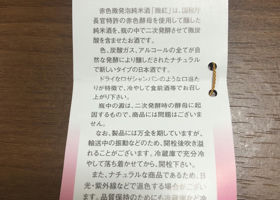 赤色微発泡純米酒「微紅」は、国税庁
長官特許の赤色酵母を使用して醸した
純米酒を、瓶の中で二次発酵させて微炭
酸を含ませたお酒です。
色、炭酸ガス、アルコールの全てが自
然な発酵により醸しだされたナチュラル
で新しいタイプの日本酒です。
ドライなロゼシャンパンのような口当た
りが特徴で、冷やして食前酒等でお召
し上がり下さい。
瓶中の澱は、二次発酵時の酵母に起
因するもので、商品には問題はございま
せん。
なお、製品には万全を期していますが、
輸送中の振動などのため、開栓後吹き溢
れることがございます。冷蔵庫で充分冷
やして落ち着かせてから、開栓下さい。
また、ナチュラルな商品であるため、日
光・紫外線などで退色する場合がござい
ます。品質保持のためにも冷蔵庫など冷